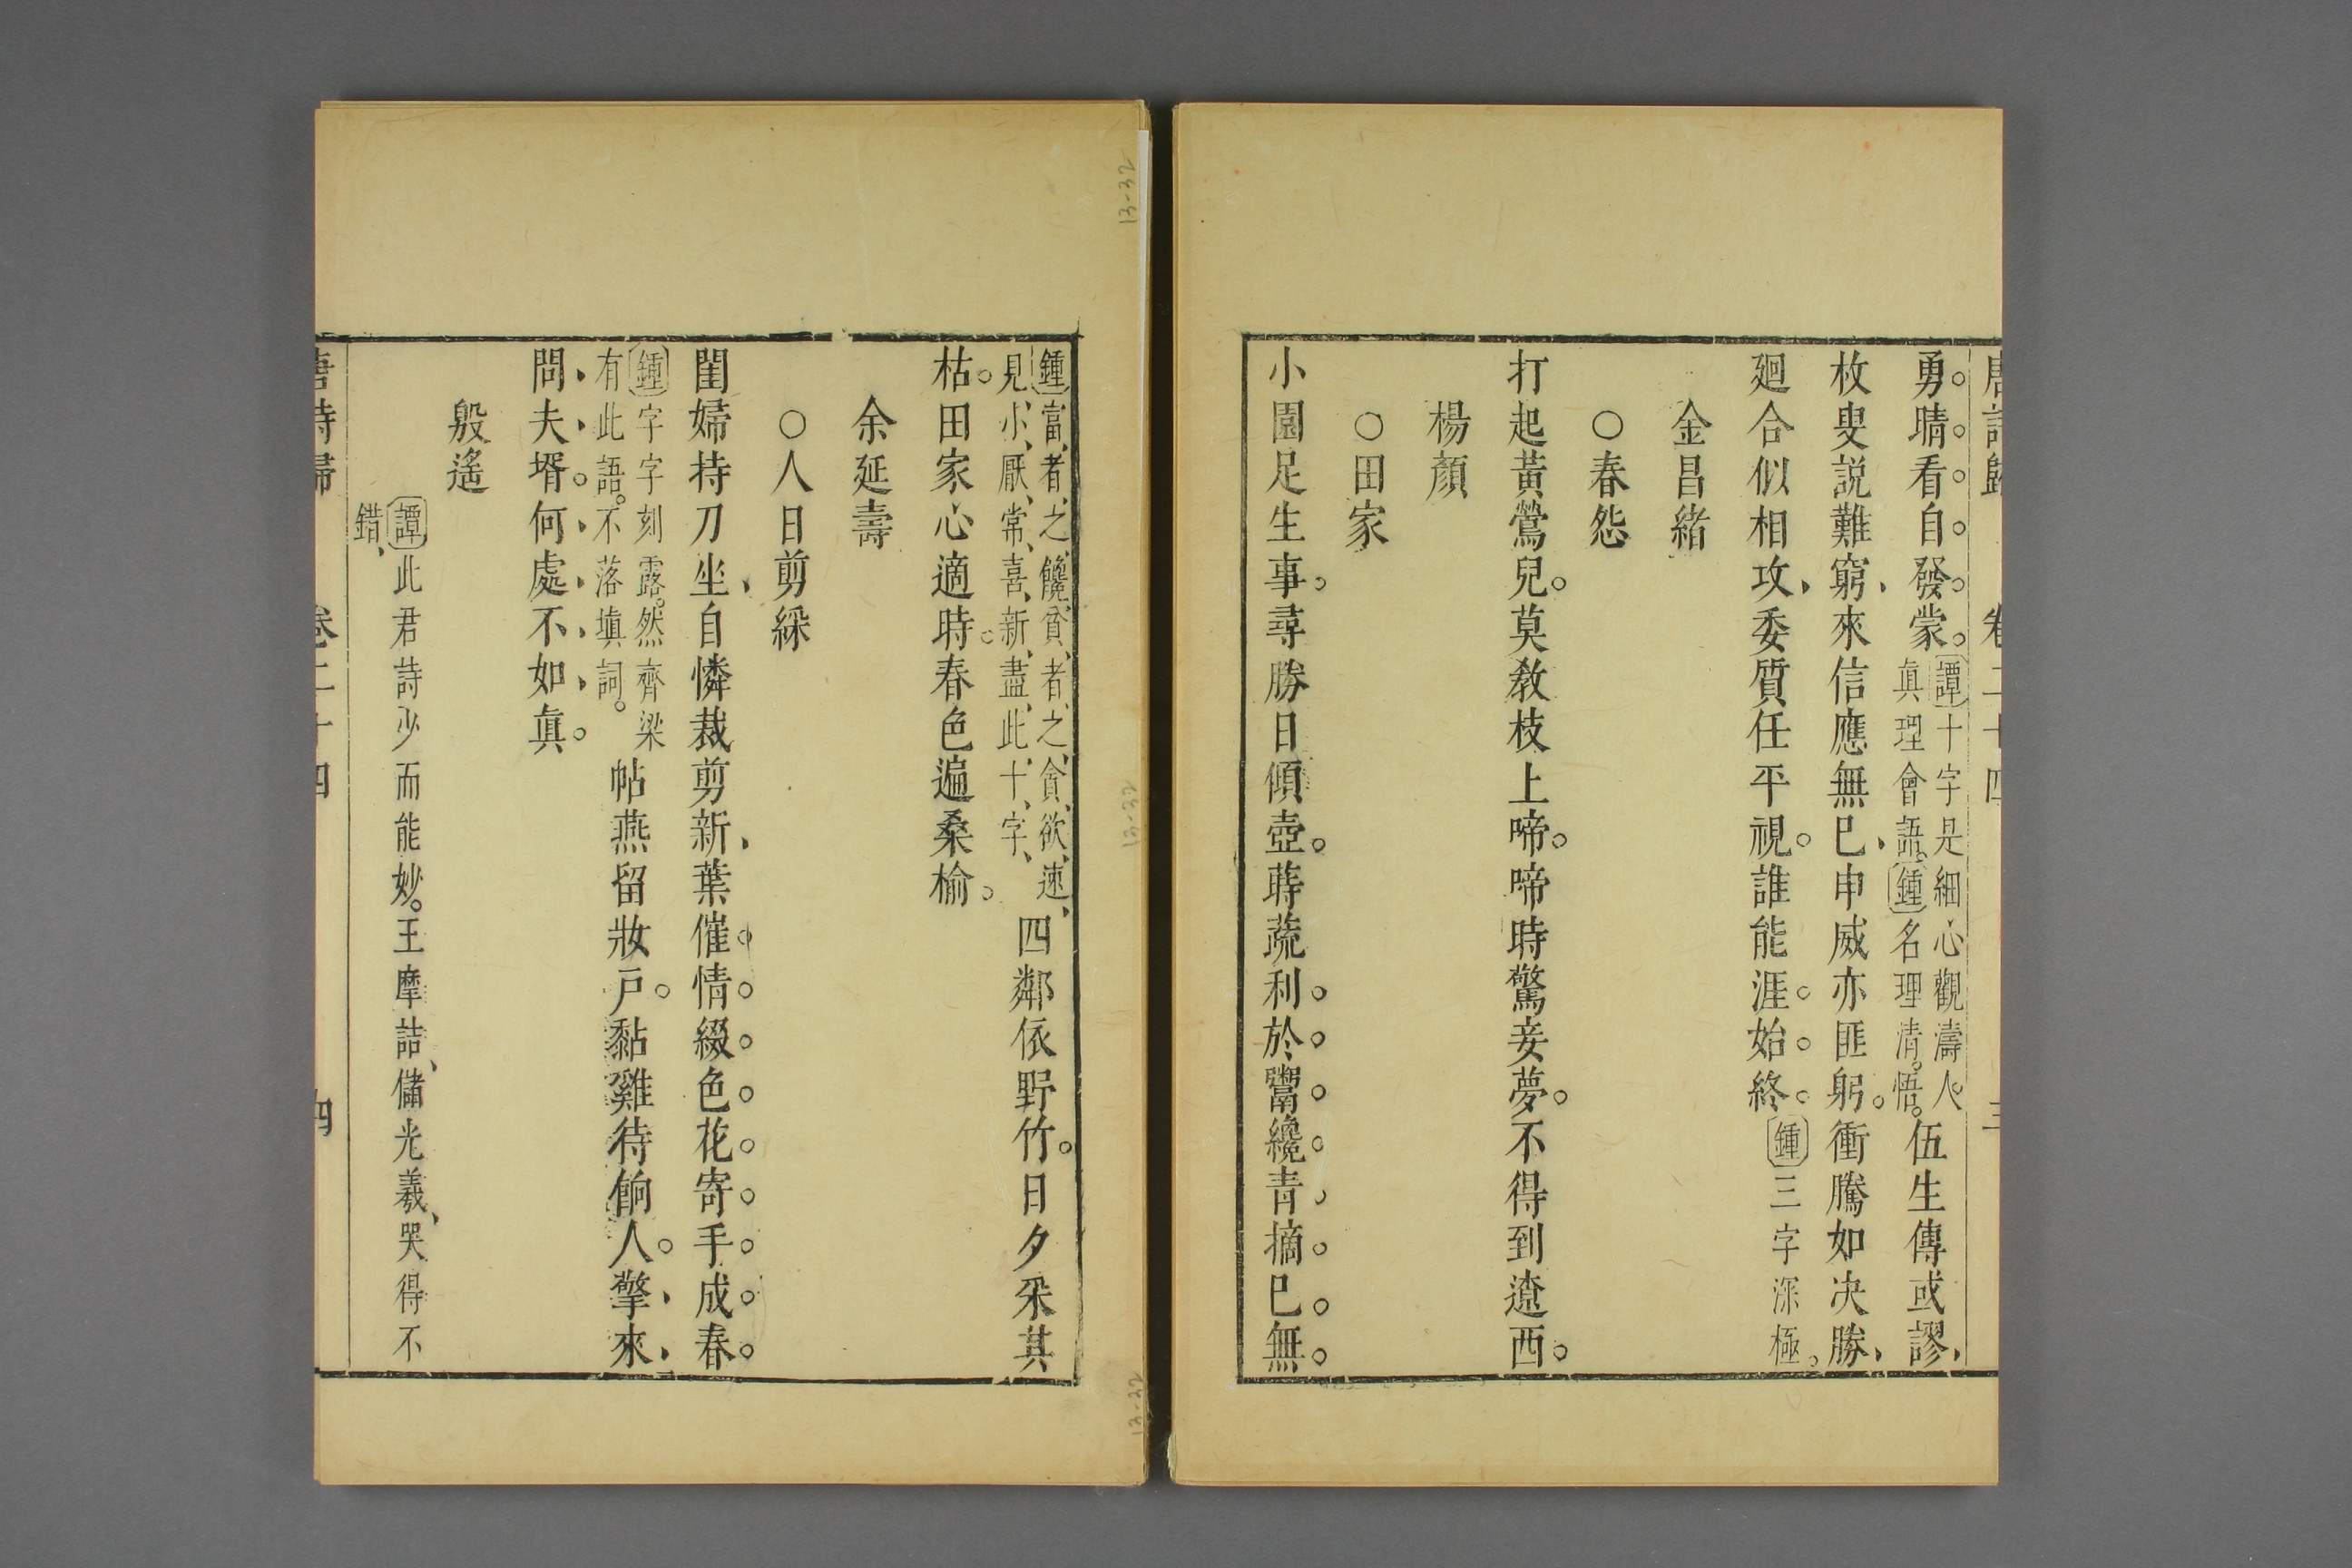 唐詩歸 卷二十四 三
勇。晴。看。自。發。蒙。譚十字是細心觀濤人
真理會語。鍾名理清。悟。伍生傳或謬、
枚叟説難窮、來信應無已、申威亦匪躬。衝騰如决勝、
廻合似相攻、委質任平視。誰能涯。始。終。鍾三字深極。
金昌緒
○春怨
打起黃鶯兒。莫教枝上啼。啼時驚妾夢。不得到遼西。
楊顏
○田家
小園足生事。尋勝日傾壺。蒔蔬利。於。鬻。纔。青。摘。已。無。
鍾富、者、之、饞、貧、者、之、貪、欲、速、
見、小、厭、常、喜、新、盡、此、十、字、四鄰依野竹。日夕采其
枯。田家心適時。春色遍桑榆。
余延壽
○人日剪綵
閨婦持刀坐、自憐裁剪新、葉催。情。綴。色。花。寄。手。成。春。
鍾字字刻露。然齊梁
有此語。不落填詞。帖燕留妝戸。黏雞待餉人。擎、來、
問、夫、壻。何、處、不、如、真。
殷遙
譚此君詩少而能妙。王摩詰、儲光羲、哭得不
錯、
唐詩歸 卷二十四 四
13-32
13-32
13-32